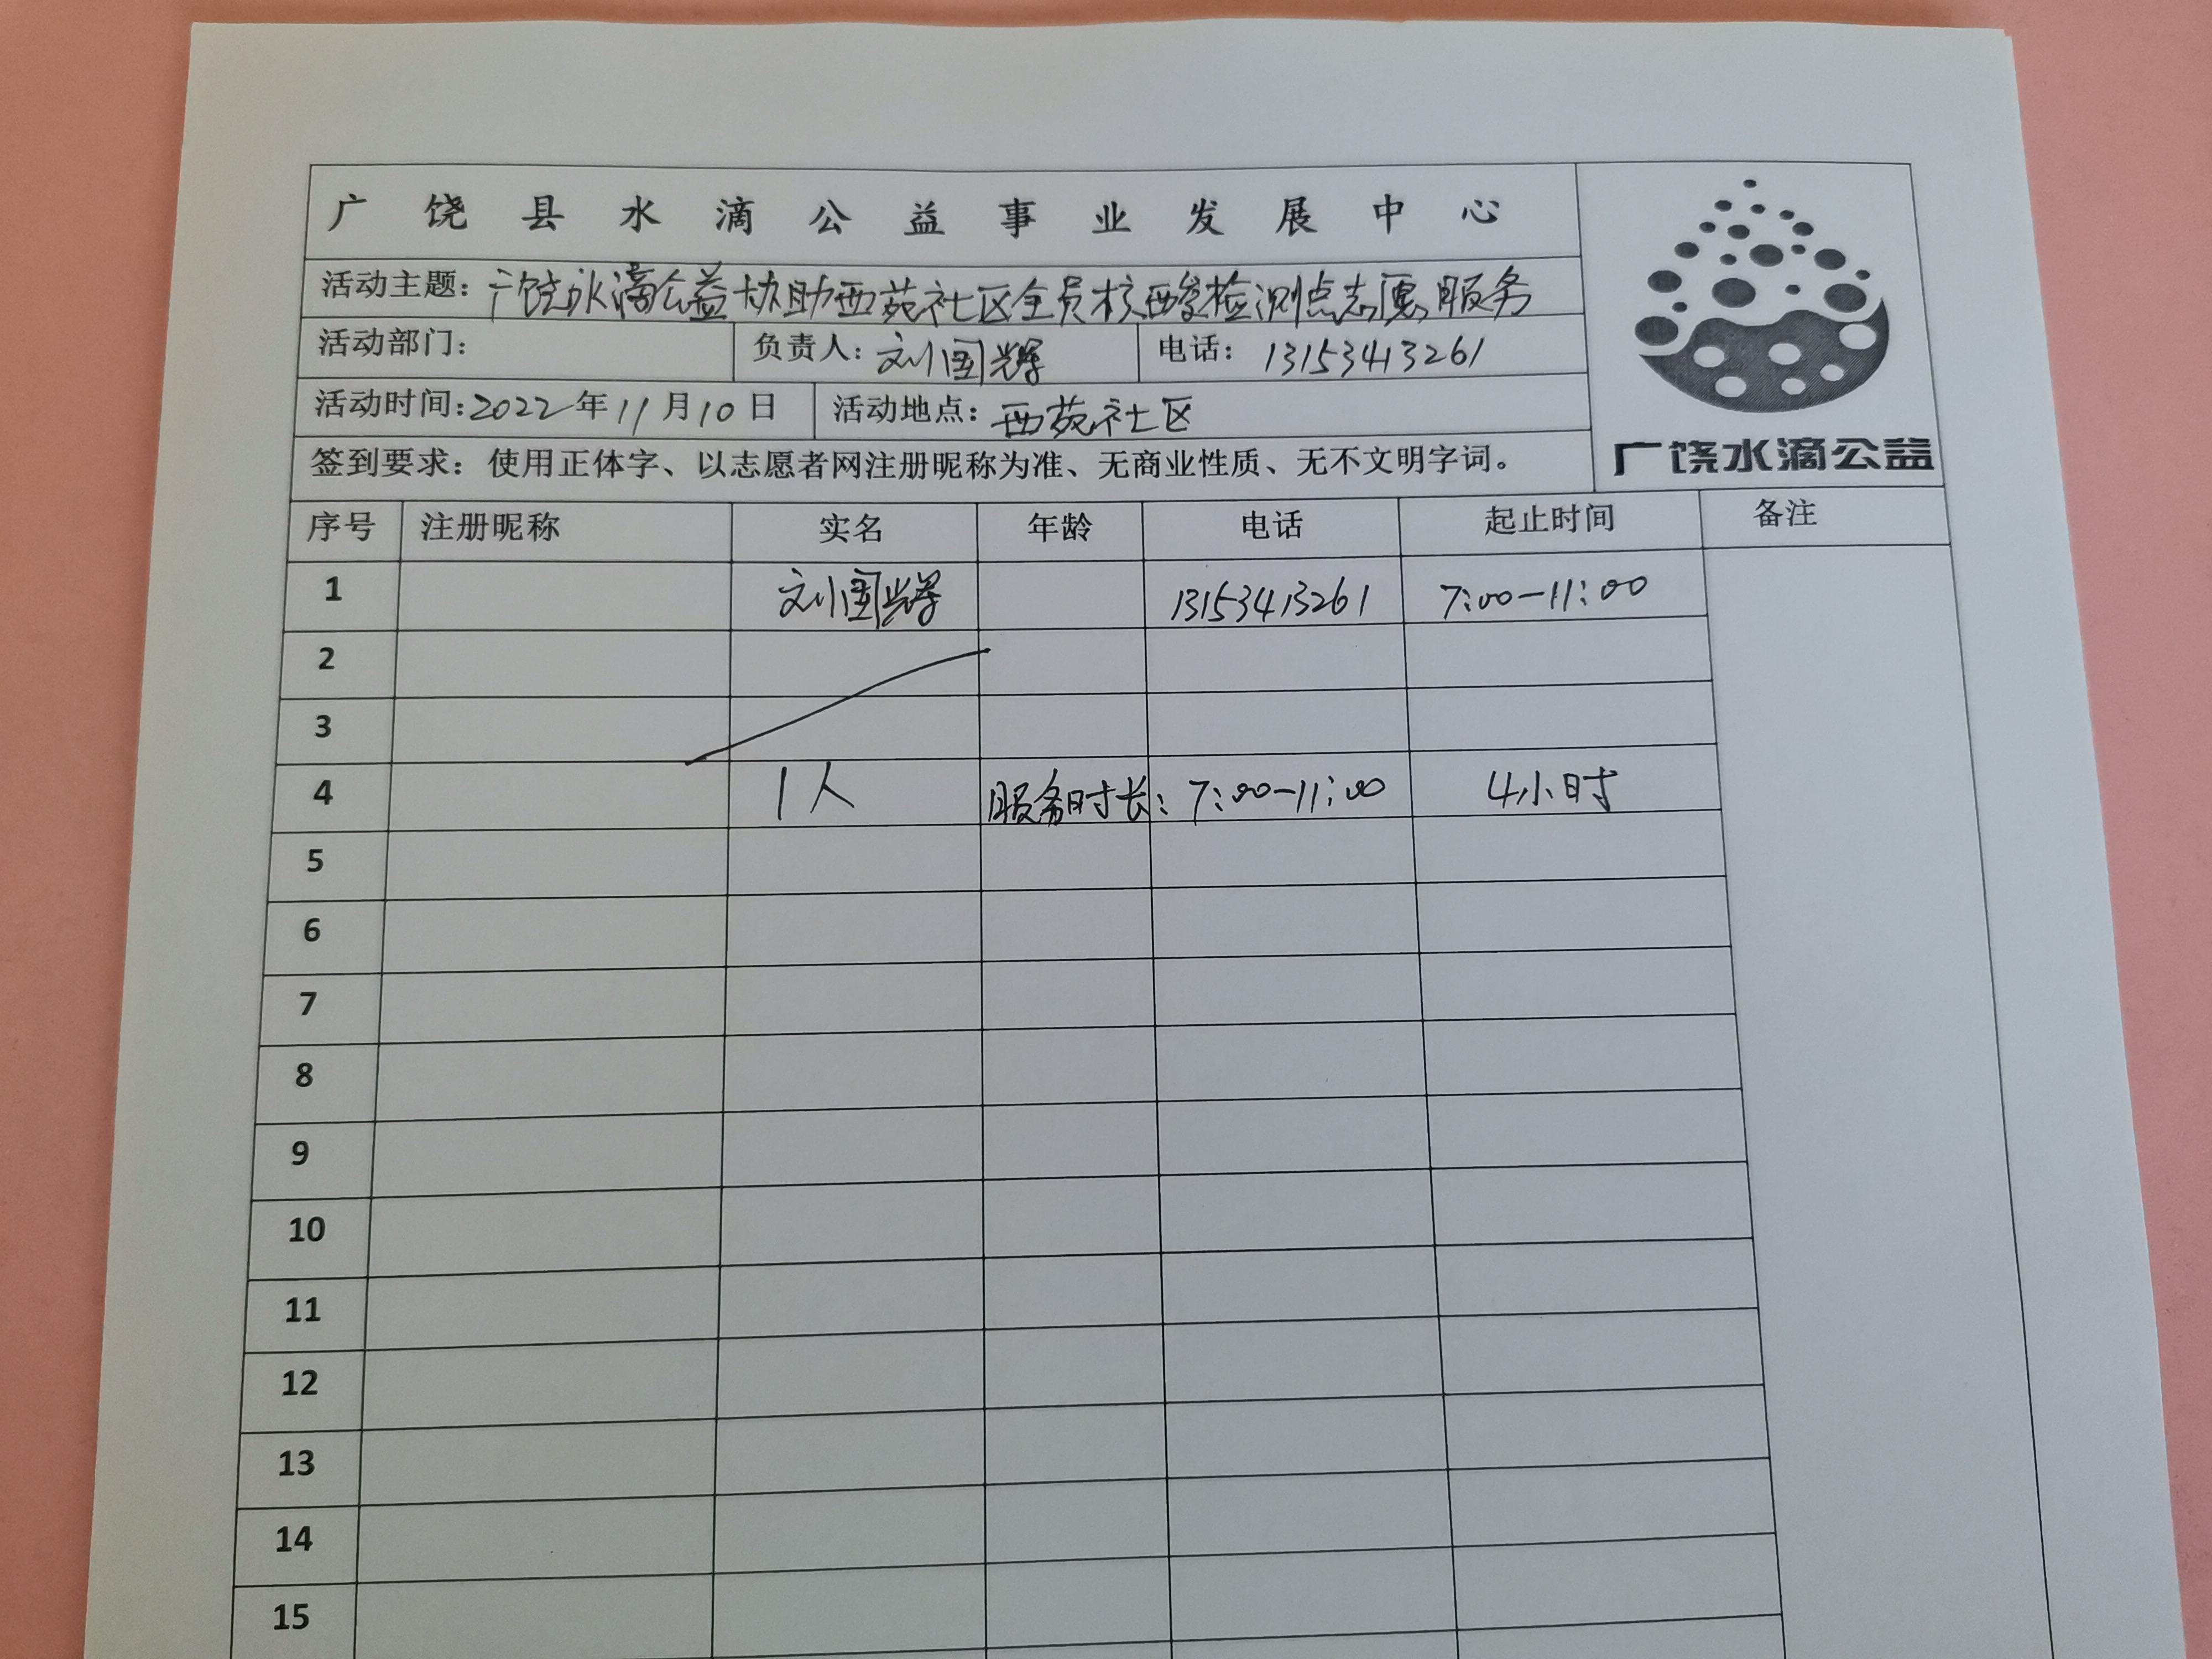 广饶县水滴公益事业发展中心
活动主题：广饶水滴公益协助西苑社区全员核酸检测点志愿服务
活动部门： 负责人：刘国辉 电话：13153413261
活动时间：2022年11月10日 活动地点：西苑社区
签到要求：使用正体字、以志愿者网注册昵称为准、无商业性质、无不文明字词。
广饶水滴公益
序号 注册昵称 实名 年龄 电话 起止时间 备注
1 刘国辉 13153413261 7:00-11:00
2
3
4 1人 服务时长：7:00-11:00 4小时
5
6
7
8
9
10
11
12
13
14
15